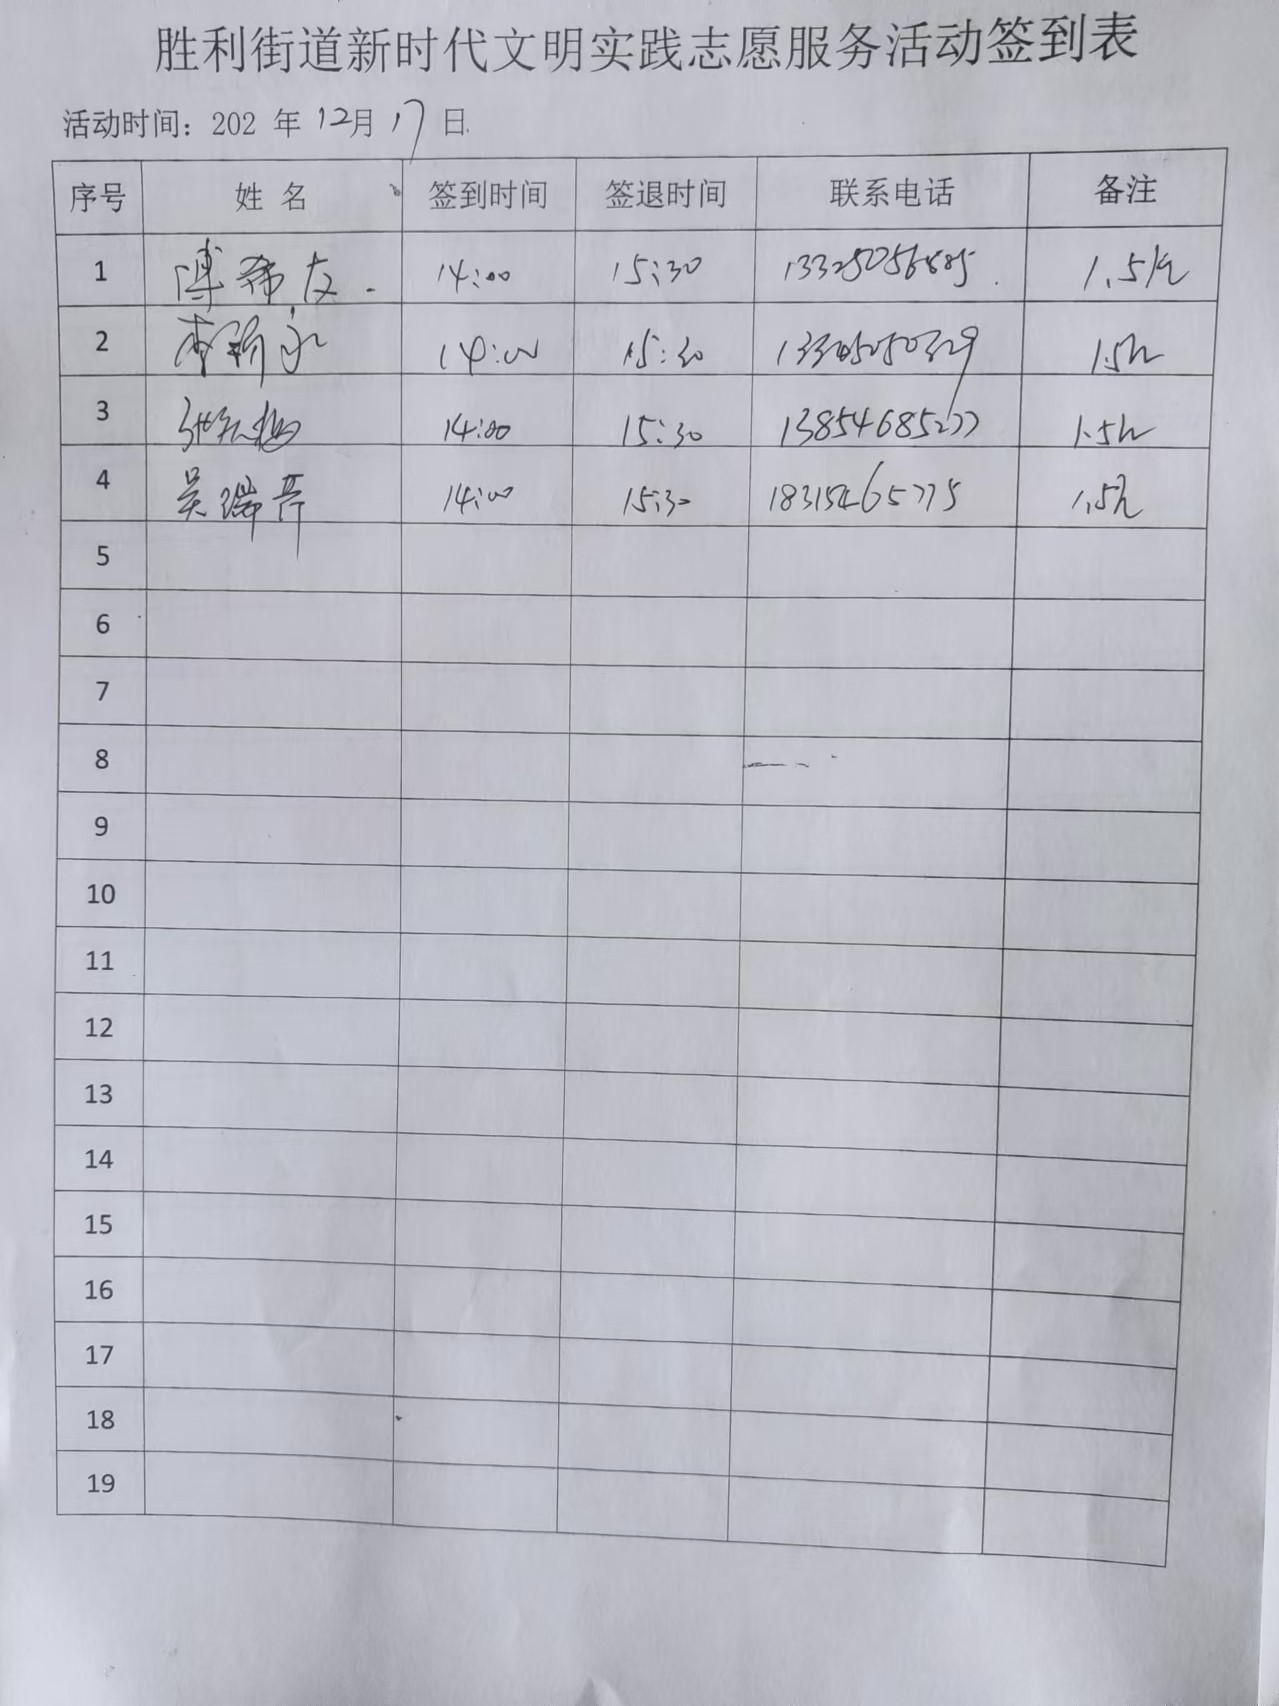 胜利街道新时代文明实践志愿服务活动签到表
活动时间：202 年 12月 17 日
序号 姓 名 签到时间 签退时间 联系电话 备注
1 14:00 15:30 1.5h
2 14:00 15:30 1.5h
3 14:00 15:30 13854685277 1.5h
4 吴瑞芹 14:00 15:30 18315465775 1.5h
5
6
7
8
9
10
11
12
13
14
15
16
17
18
19